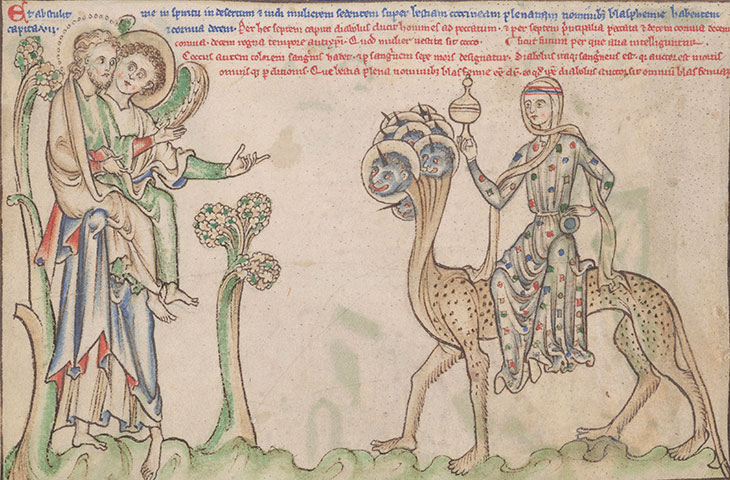 Et abstulit me in spiritu in desertum & uidi mulierem sedentem super bestiam coccineam plenam nominibus blasphemie habentem
capita .vii. & cornua decem. Per hec septem capita diabolus ducit homines ad peccatum. & per septem principalia peccata & decem cornua decem
cornua. decem regna tempore antixpi. Quod mulier uestita sit cocco. licet supra per que alia intelliguntur.
Coccus autem colorem sanguinis habet. & per sanguinem sepe mors designatur. Diabolus itaq sanguineus est. qui auctor est mortis
omnis Que bestia plena nominibus blasfemie diabolus auctor sit omnium blasfemiarum